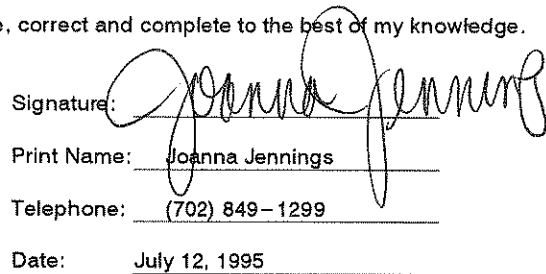 e, correct and complete to the best of my knowledge.
Signature: Joanna Jennings
Print Name: Joanna Jennings
Telephone: (702) 849-1299
Date: July 12, 1995